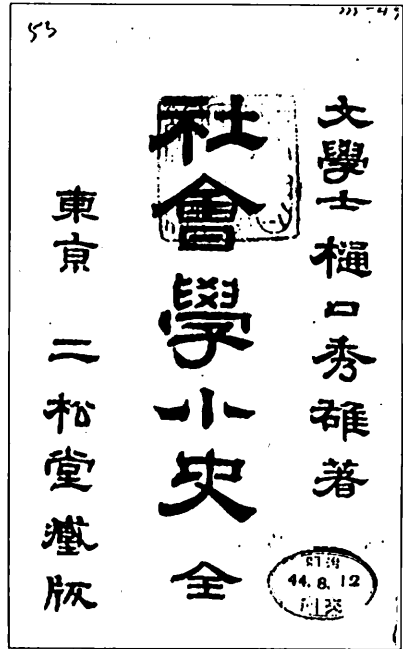 文學士 樋口秀雄著
社會學小史 全
東京 二松堂藏版
53
44.8.12